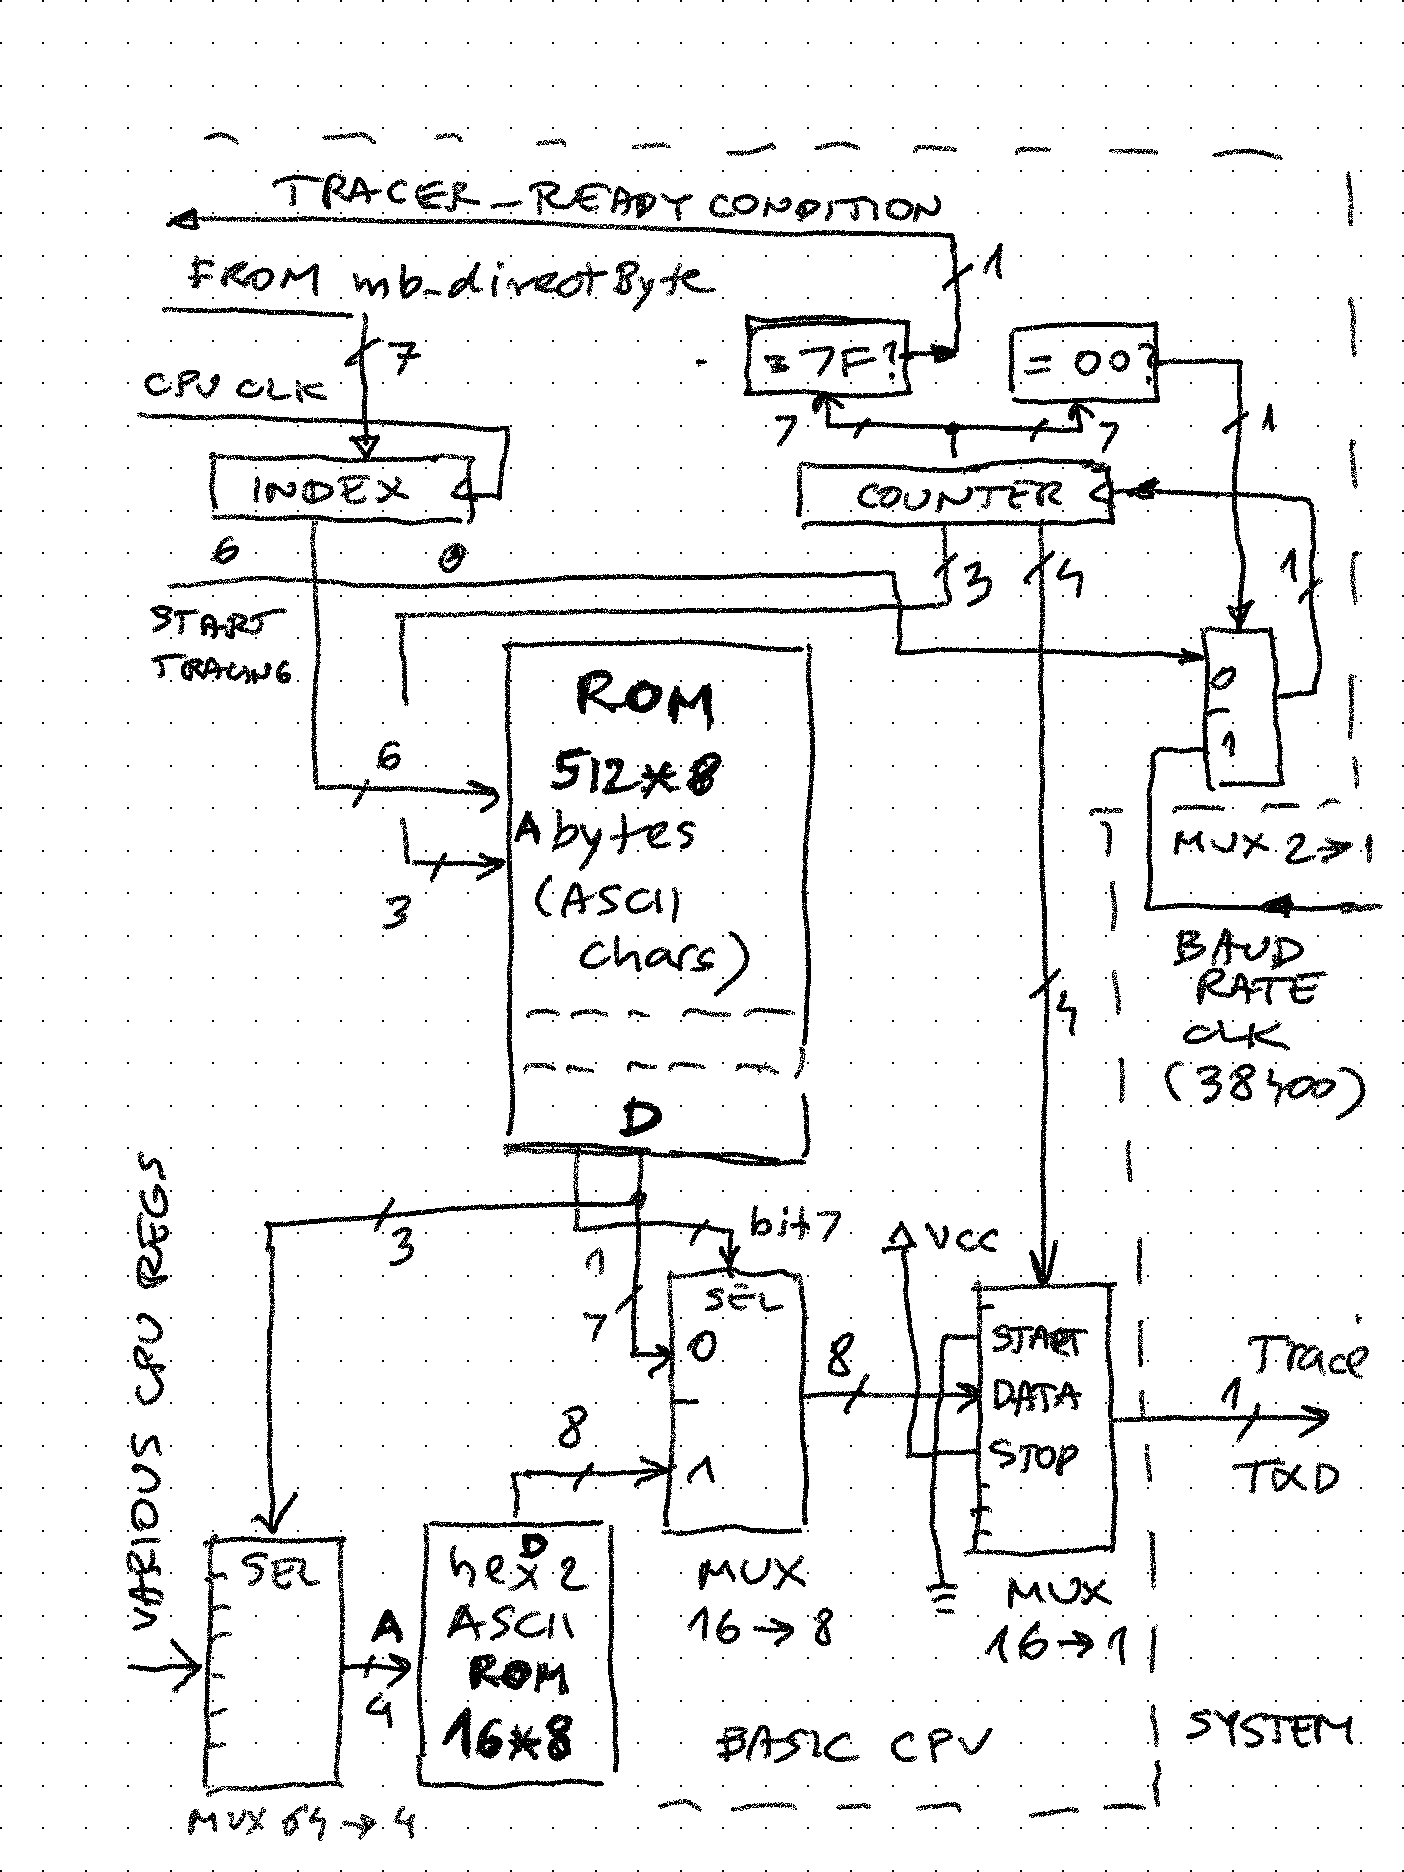 TRACER_READY CONDITION
1
FROM mb_directByte
7
= 7F?
= 00?
CPU CLK
7
7
1
INDEX
COUNTER
6
0
3
4
1
START
TRACING
0
1
ROM
512*8
A bytes
(ASCII
chars)
D
6
3
MUX 2→1
BAUD
RATE
CLK
(38400)
4
VARIOUS CPU REGS
3
1
7
bit7
VCC
SEL
0
1
8
START
DATA
STOP
8
Trace
1
TXD
SEL
A
4
hex2
D
ASCII
ROM
16*8
MUX
16→8
MUX
16→1
BASIC CPU
SYSTEM
MUX 64→4